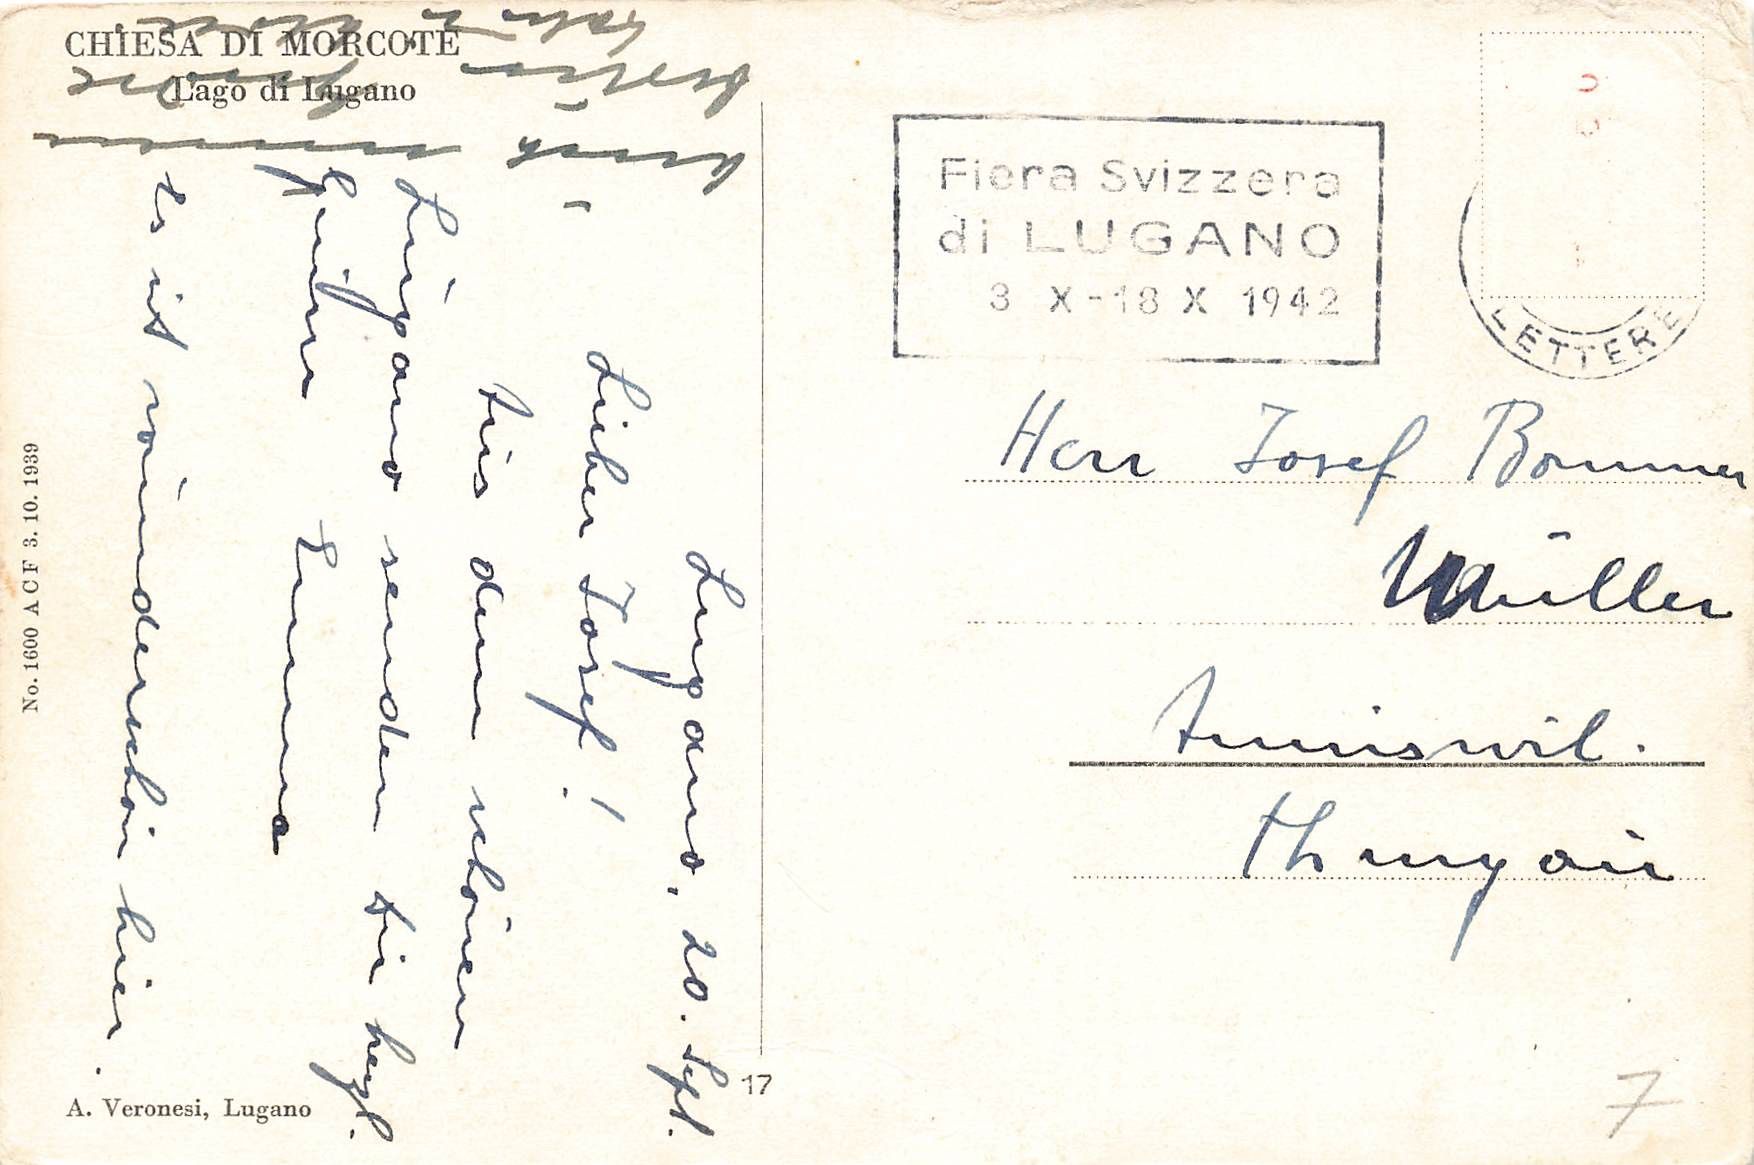 CHIESA DI MORCOTE
Lago di Lugano
Lugano, 20. Sept.
Lieber Josef!
Aus dem schönen
Lugano senden dir herzl.
Grüsse Emma
Es ist wunderschön hier.
No. 1600 A C F 3. 10. 1939
A. Veronesi, Lugano
17
Fiera Svizzera
di LUGANO
3 X - 18 X 1942
LETTERE
Herr Josef Bommer
Müller
Amriswil.
Thurgau
7